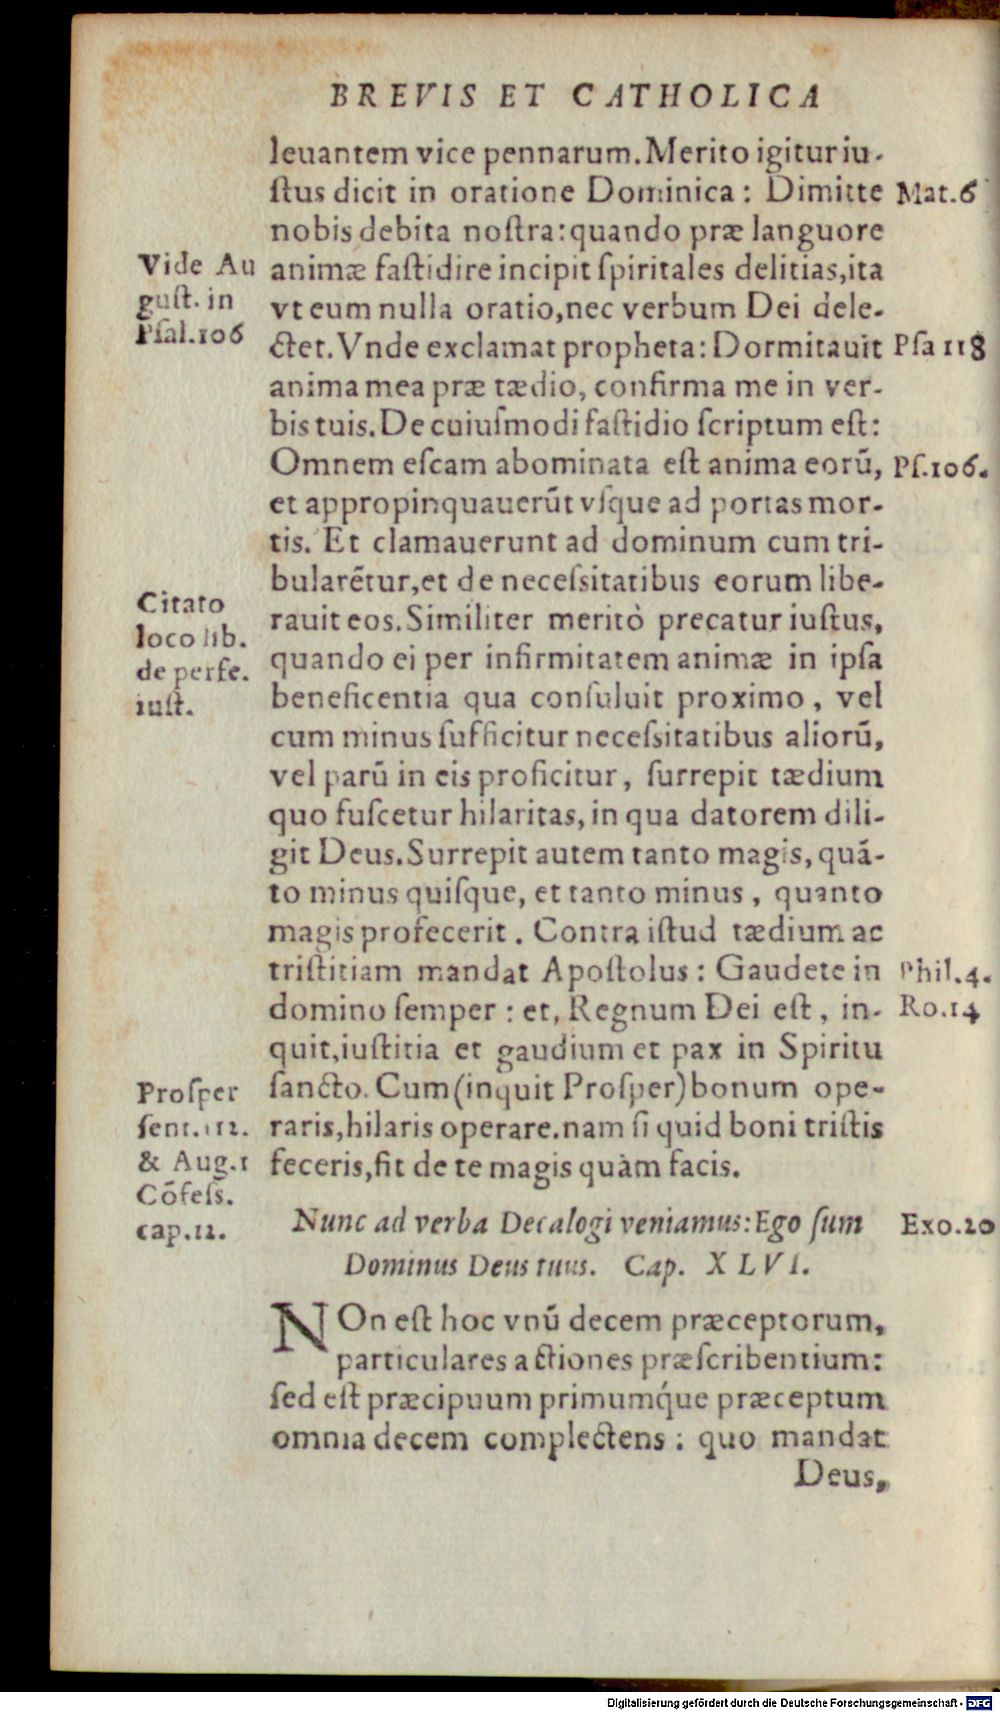 BREVIS ET CATHOLICA
leuantem vice pennarum. Merito igitur iu-
ſtus dicit in oratione Dominica: Dimitte
Mat.6
nobis debita noſtra: quando præ languore
animæ faſtidire incipit ſpiritales delitias, ita
vt eum nulla oratio, nec verbum Dei dele-
Vide Au
guſt. in
Pſal.106
ctet. Vnde exclamat propheta: Dormitauit
Pſa 118
anima mea præ tædio, confirma me in ver-
bis tuis. De cuiuſmodi faſtidio ſcriptum eſt:
Omnem eſcam abominata eſt anima eorū,
Pſ.106.
et appropinquauerūt vſque ad portas mor-
tis. Et clamauerunt ad dominum cum tri-
bularētur, et de neceſsitatibus eorum libe-
rauit eos. Similiter meritò precatur iuſtus,
quando ei per infirmitatem animæ in ipſa
beneficentia qua conſuluit proximo, vel
Citato
loco lib.
de perfe.
iuſt.
cum minus ſufficitur neceſsitatibus aliorū,
vel parū in eis proficitur, ſurrepit tædium
quo fuſcetur hilaritas, in qua datorem dili-
git Deus. Surrepit autem tanto magis, quā-
to minus quiſque, et tanto minus, quanto
magis profecerit. Contra iſtud tædium ac
triſtitiam mandat Apoſtolus: Gaudete in
Phil.4.
domino ſemper: et, Regnum Dei eſt, in-
Ro.14
quit, iuſtitia et gaudium et pax in Spiritu
ſancto. Cum (inquit Proſper) bonum ope-
raris, hilaris operare. nam ſi quid boni triſtis
feceris, fit de te magis quàm facis.
Proſper
ſent.112.
& Aug.1
Cōfeſſ.
cap.12.
Nunc ad verba Decalogi veniamus: Ego ſum
Exo.20
Dominus Deus tuus. Cap. XLVI.
NOn eſt hoc vnū decem præceptorum,
particulares actiones præſcribentium:
ſed eſt præcipuum primumq́ue præceptum
omnia decem complectens: quo mandat
Deus,
Digitalisierung gefördert durch die Deutsche Forschungsgemeinschaft - DFG